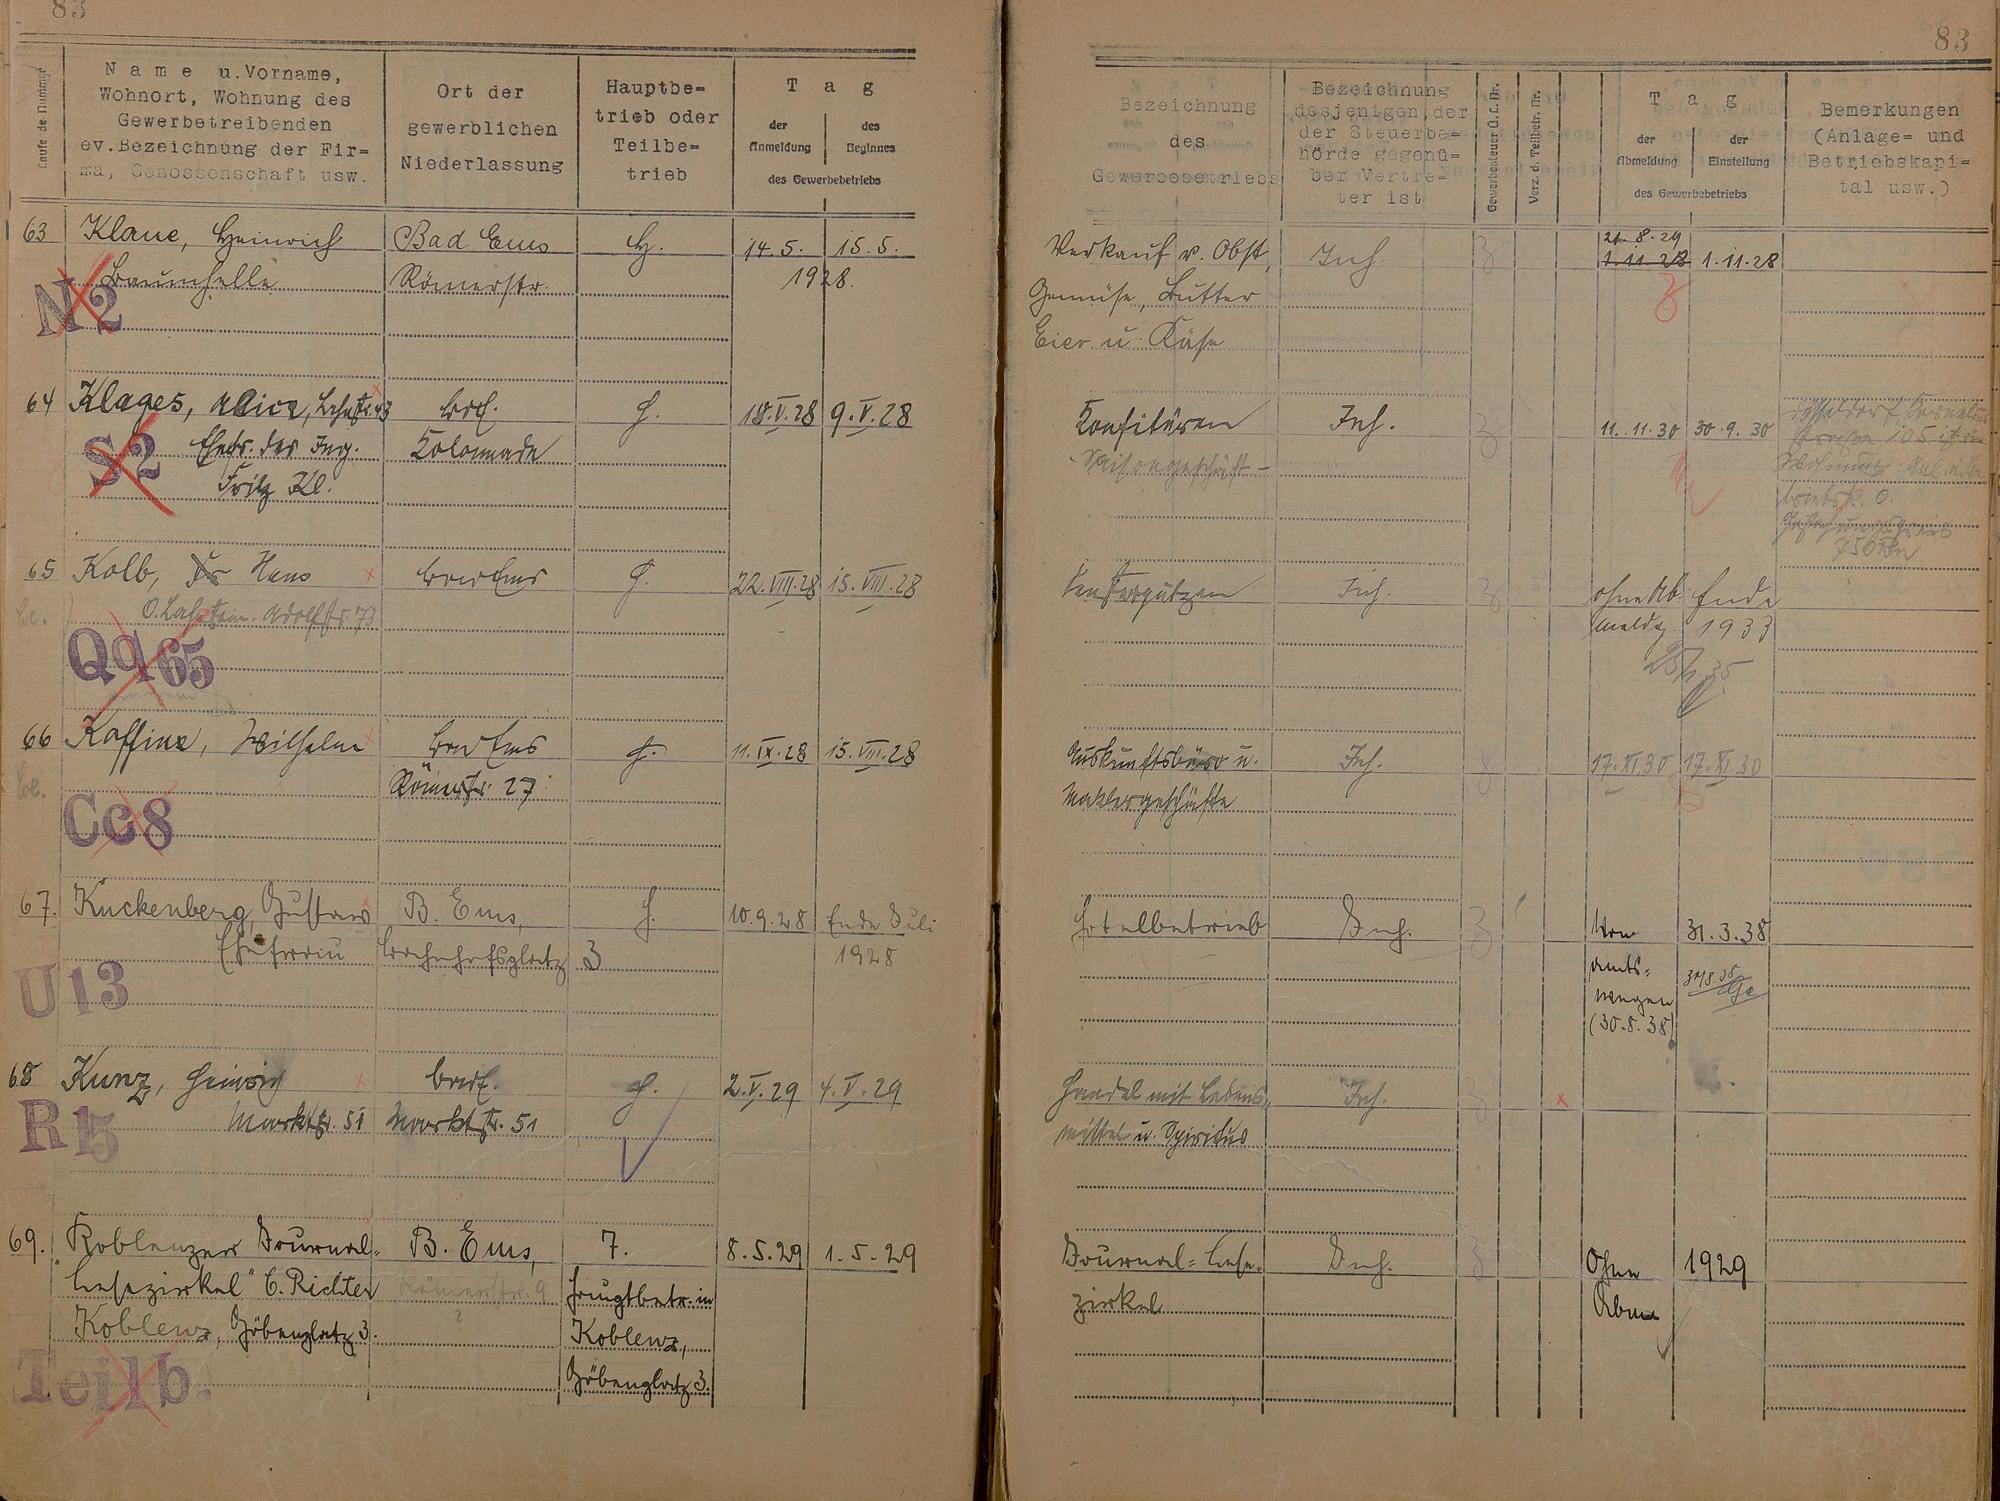 83
83
Laufende Nummer
Name u. Vorname,
Wohnort, Wohnung des
Gewerbetreibenden
ev. Bezeichnung der Fir=
ma, Genossenschaft usw.
Ort der
gewerblichen
Niederlassung
Hauptbe=
trieb oder
Teilbe=
trieb
Tag
der Anmeldung
des Beginnes
des Gewerbebetriebs
Bezeichnung
des
Gewerbebetriebs
Bezeichnung
desjenigen, der
der Steuerbe=
hörde gegenü=
ber Vertre=
ter ist
Gewerbesteuer Ü. L. Nr.
Verz. d. Teilbetr. Nr.
Tag
der Abmeldung
der Einstellung
des Gewerbebetriebs
Bemerkungen
(Anlage= und
Betriebskapi=
tal usw.)
63 Klaue, Heinrich Bad Ems H. 14.5. 15.5. Verkauf v. Obst, Inh. 21.8.29
1.11.28 1.11.28
Römerstr. 1928. Gemüse, Butter
N2
Eier u. Käse
64 Klages, Alice, Lahnstr. 43 Bad E. H. 18.V.28 9.V.28 Konfitüren Inh. 11.11.30 30.9.30
Ehefr. des Ing. Kolonnade Saisongeschäft
Fritz Kl.
S2
65 Kolb, Hans Bad Ems H. 22.VIII.28 15.VIII.28 Fensterputzen Inh. ohne Ab Ende
O. Lahnstein. Adolfstr. 73 meldg. 1933
Qq65
66 Kaffine, Wilhelm Bad Ems H. 11.IX.28 15.VIII.28 Auskunftsbüro u. Inh. 17.XI.30 17.XI.30
Römerstr. 27 Maklergeschäfte
Cc8
67. Kuckenberg, Gustav B. Ems, H. 10.9.28 Ende Juli Hotelbetrieb Inh. Von 31.3.38
Ehefrau Bahnhofsplatz 3 1928 Amts=
wegen
(30.8.38)
U13
68 Kunz, Heinrich Bad E. H. 2.V.29 4.V.29 Handel mit Lebens= Inh.
Marktstr. 51 Marktstr. 51 mittel u. Spiritus
R15
69. "Koblenzer Journal= B. Ems, T. 8.5.29 1.5.29 Journal=Lese= Inh. Ohne 1929
Lesezirkel" C. Richter Römerstr. 9 Hauptbetr. in zirkel Abm
Koblenz, Göbenplatz 3. Koblenz,
Göbenplatz 3.
Teilb.